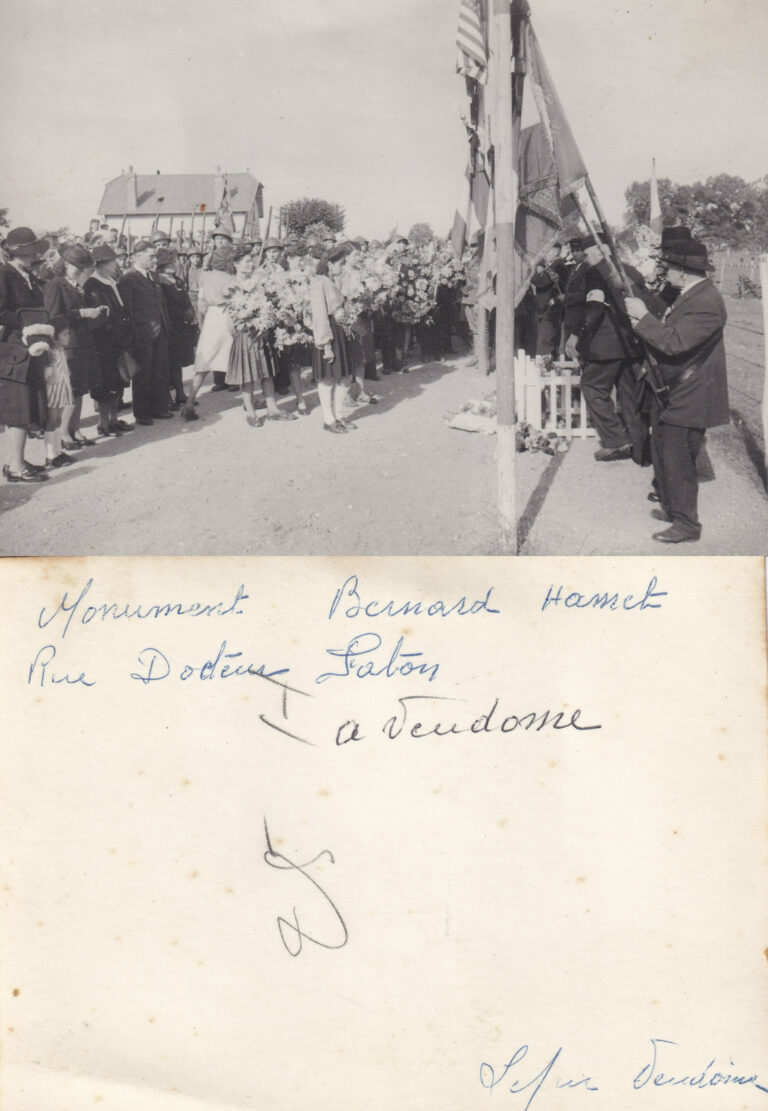 Monument Bernard Hamet
Rue Docteur Faton
a Vendome
Vendôme